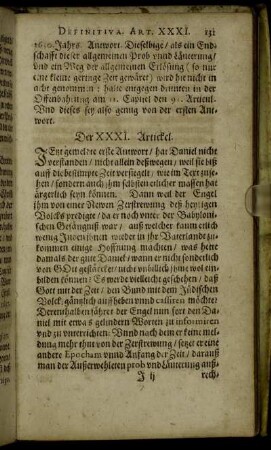 Definitiva. Art. XXXI. 131
1610. Jahrs. Antwort. Dieselbige / als ein End-
schafft dieser allgemeinen Prob vnnd Läuterung /
vnd ein Weg der allgemeinen Erlösung / so nur
eine kleine geringe Zeit gewäret) wird hie nicht in
acht genommen: halte entgegen drunten in der
Offenbahrung am 11. Capitel den 91. Articul.
Vnd dieses sey also gnung von der ersten Ant-
wort.
Der XXXI. Artickel.
JEntgemeldte erste Antwort / hat Daniel nicht
verstanden / nicht allein deßwegen / weil sie biß
auff die bestimpte Zeit versiegelt / wie im Text zuse-
hen / sondern auch jhm selbsten etlicher massen hat
ärgerlich seyn können. Dann weil der Engel
jhm von einer Newen Zerstrewung deß heyligen
Volcks predigte / da er noch vnter der Babyloni-
schen Gefängnuß war / auß welcher kaum etlich
wenig Jnwohnern wieder in jhr Vatterlande zu-
kommen einige Hoffnung machten / was hette
damals der gute Daniel / wann er nicht sonderlich
von GOtt gestärcket / nicht vnbillich jhme wol ein-
bilden können / Es werde vielleicht geschehen / daß
Gott mit der Zeit / den Bund mit dem Jüdischen
Volck / gäntzlich auffheben vnnd cassiren möchte?
Derenthalben fähret der Engel nun fort den Da-
niel mit etwas gelindern Worten zu informiren
vnd zu vnterrichten: Vnnd nach dem er keine mel-
dung mehr thut von der Zerstrewung / setzet er eine
andere Epocham vnnd Anfang der Zeit / darauß
man der Außerwehleten prob vnd Läuterung auß-
J ij rech-